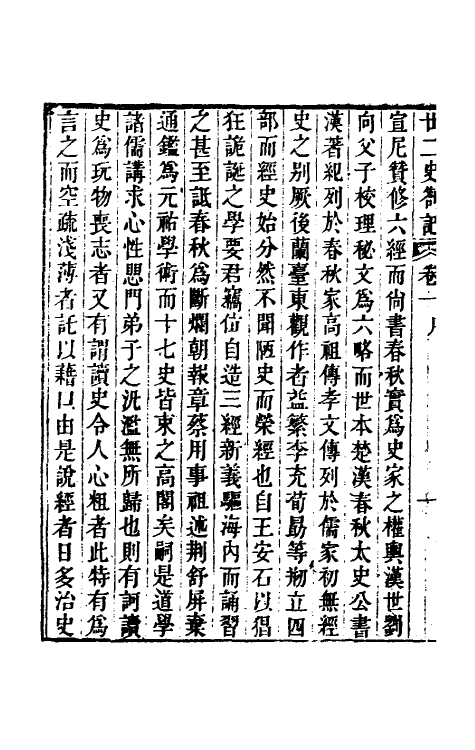 廿二史劄記 卷一序
宣尼贊修六經而尙書春秋實爲史家之權輿漢世劉
向父子校理秘文爲六略而世本楚漢春秋太史公書
漢著紀列於春秋家高祖傳孝文傳列於儒家初無經
史之别厥後蘭臺東觀作者益繁李充荀勗等刱立四
部而經史始分然不聞陋史而榮經也自王安石以猖
狂詭誕之學要君竊位自造三經新義驅海內而誦習
之甚至詆春秋爲斷爛朝報章蔡用事祖述荆舒屏棄
通鑑爲元祐學術而十七史皆束之高閣矣嗣是道學
諸儒講求心性思門弟子之汎濫無所歸也則有訶讀
史爲玩物喪志者又有謂讀史令人心粗者此特有爲
言之而空疏淺薄者託以藉口由是說經者日多治史